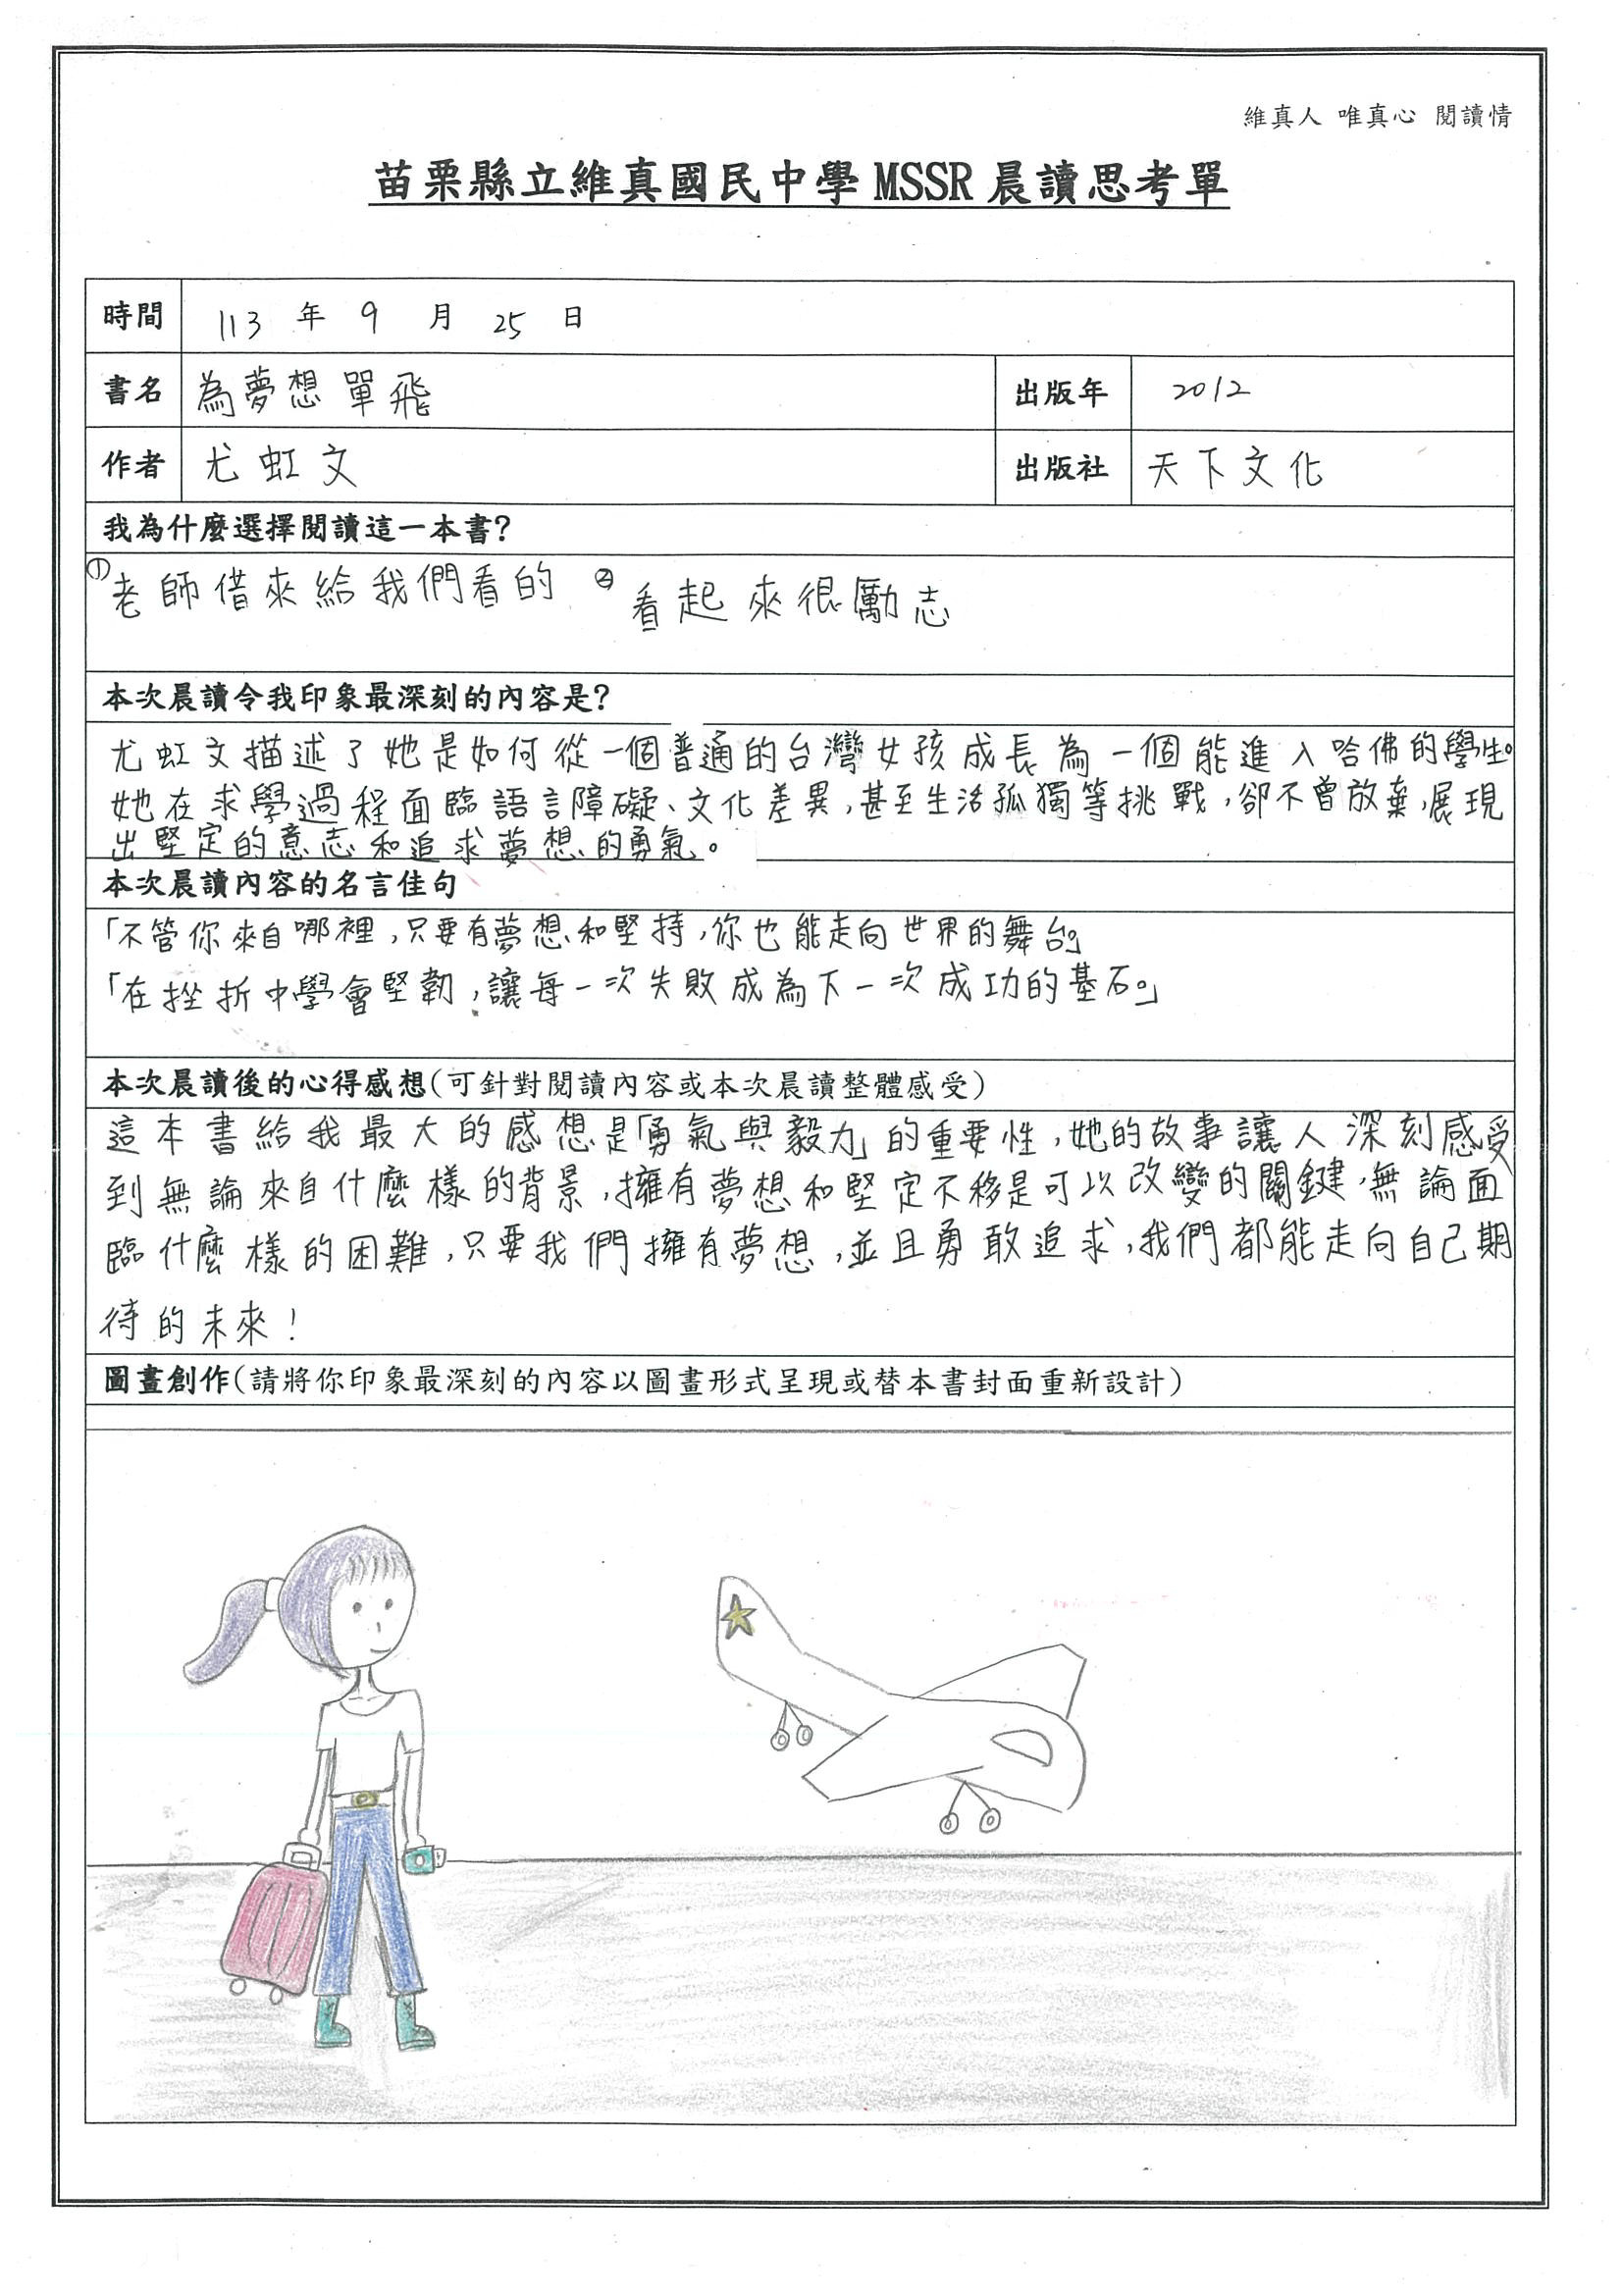 維真人 唯真心 閱讀情
苗栗縣立維真國民中學MSSR晨讀思考單
時間 113 年 9 月 25 日
書名 為夢想單飛 出版年 2012
作者 尤虹文 出版社 天下文化
我為什麼選擇閱讀這一本書?
①老師借來給我們看的 ②看起來很勵志
本次晨讀令我印象最深刻的內容是?
尤虹文描述了她是如何從一個普通的台灣女孩成長為一個能進入哈佛的學生。
她在求學過程面臨語言障礙、文化差異,甚至生活孤獨等挑戰,卻不曾放棄,展現
出堅定的意志和追求夢想的勇氣。
本次晨讀內容的名言佳句
「不管你來自哪裡,只要有夢想和堅持,你也能走向世界的舞台。」
「在挫折中學會堅韌,讓每一次失敗成為下一次成功的基石。」
本次晨讀後的心得感想(可針對閱讀內容或本次晨讀整體感受)
這本書給我最大的感想是「勇氣與毅力」的重要性,她的故事讓人深刻感受
到無論來自什麼樣的背景,擁有夢想和堅定不移是可以改變的關鍵,無論面
臨什麼樣的困難,只要我們擁有夢想,並且勇敢追求,我們都能走向自己期
待的未來!
圖畫創作(請將你印象最深刻的內容以圖畫形式呈現或替本書封面重新設計)